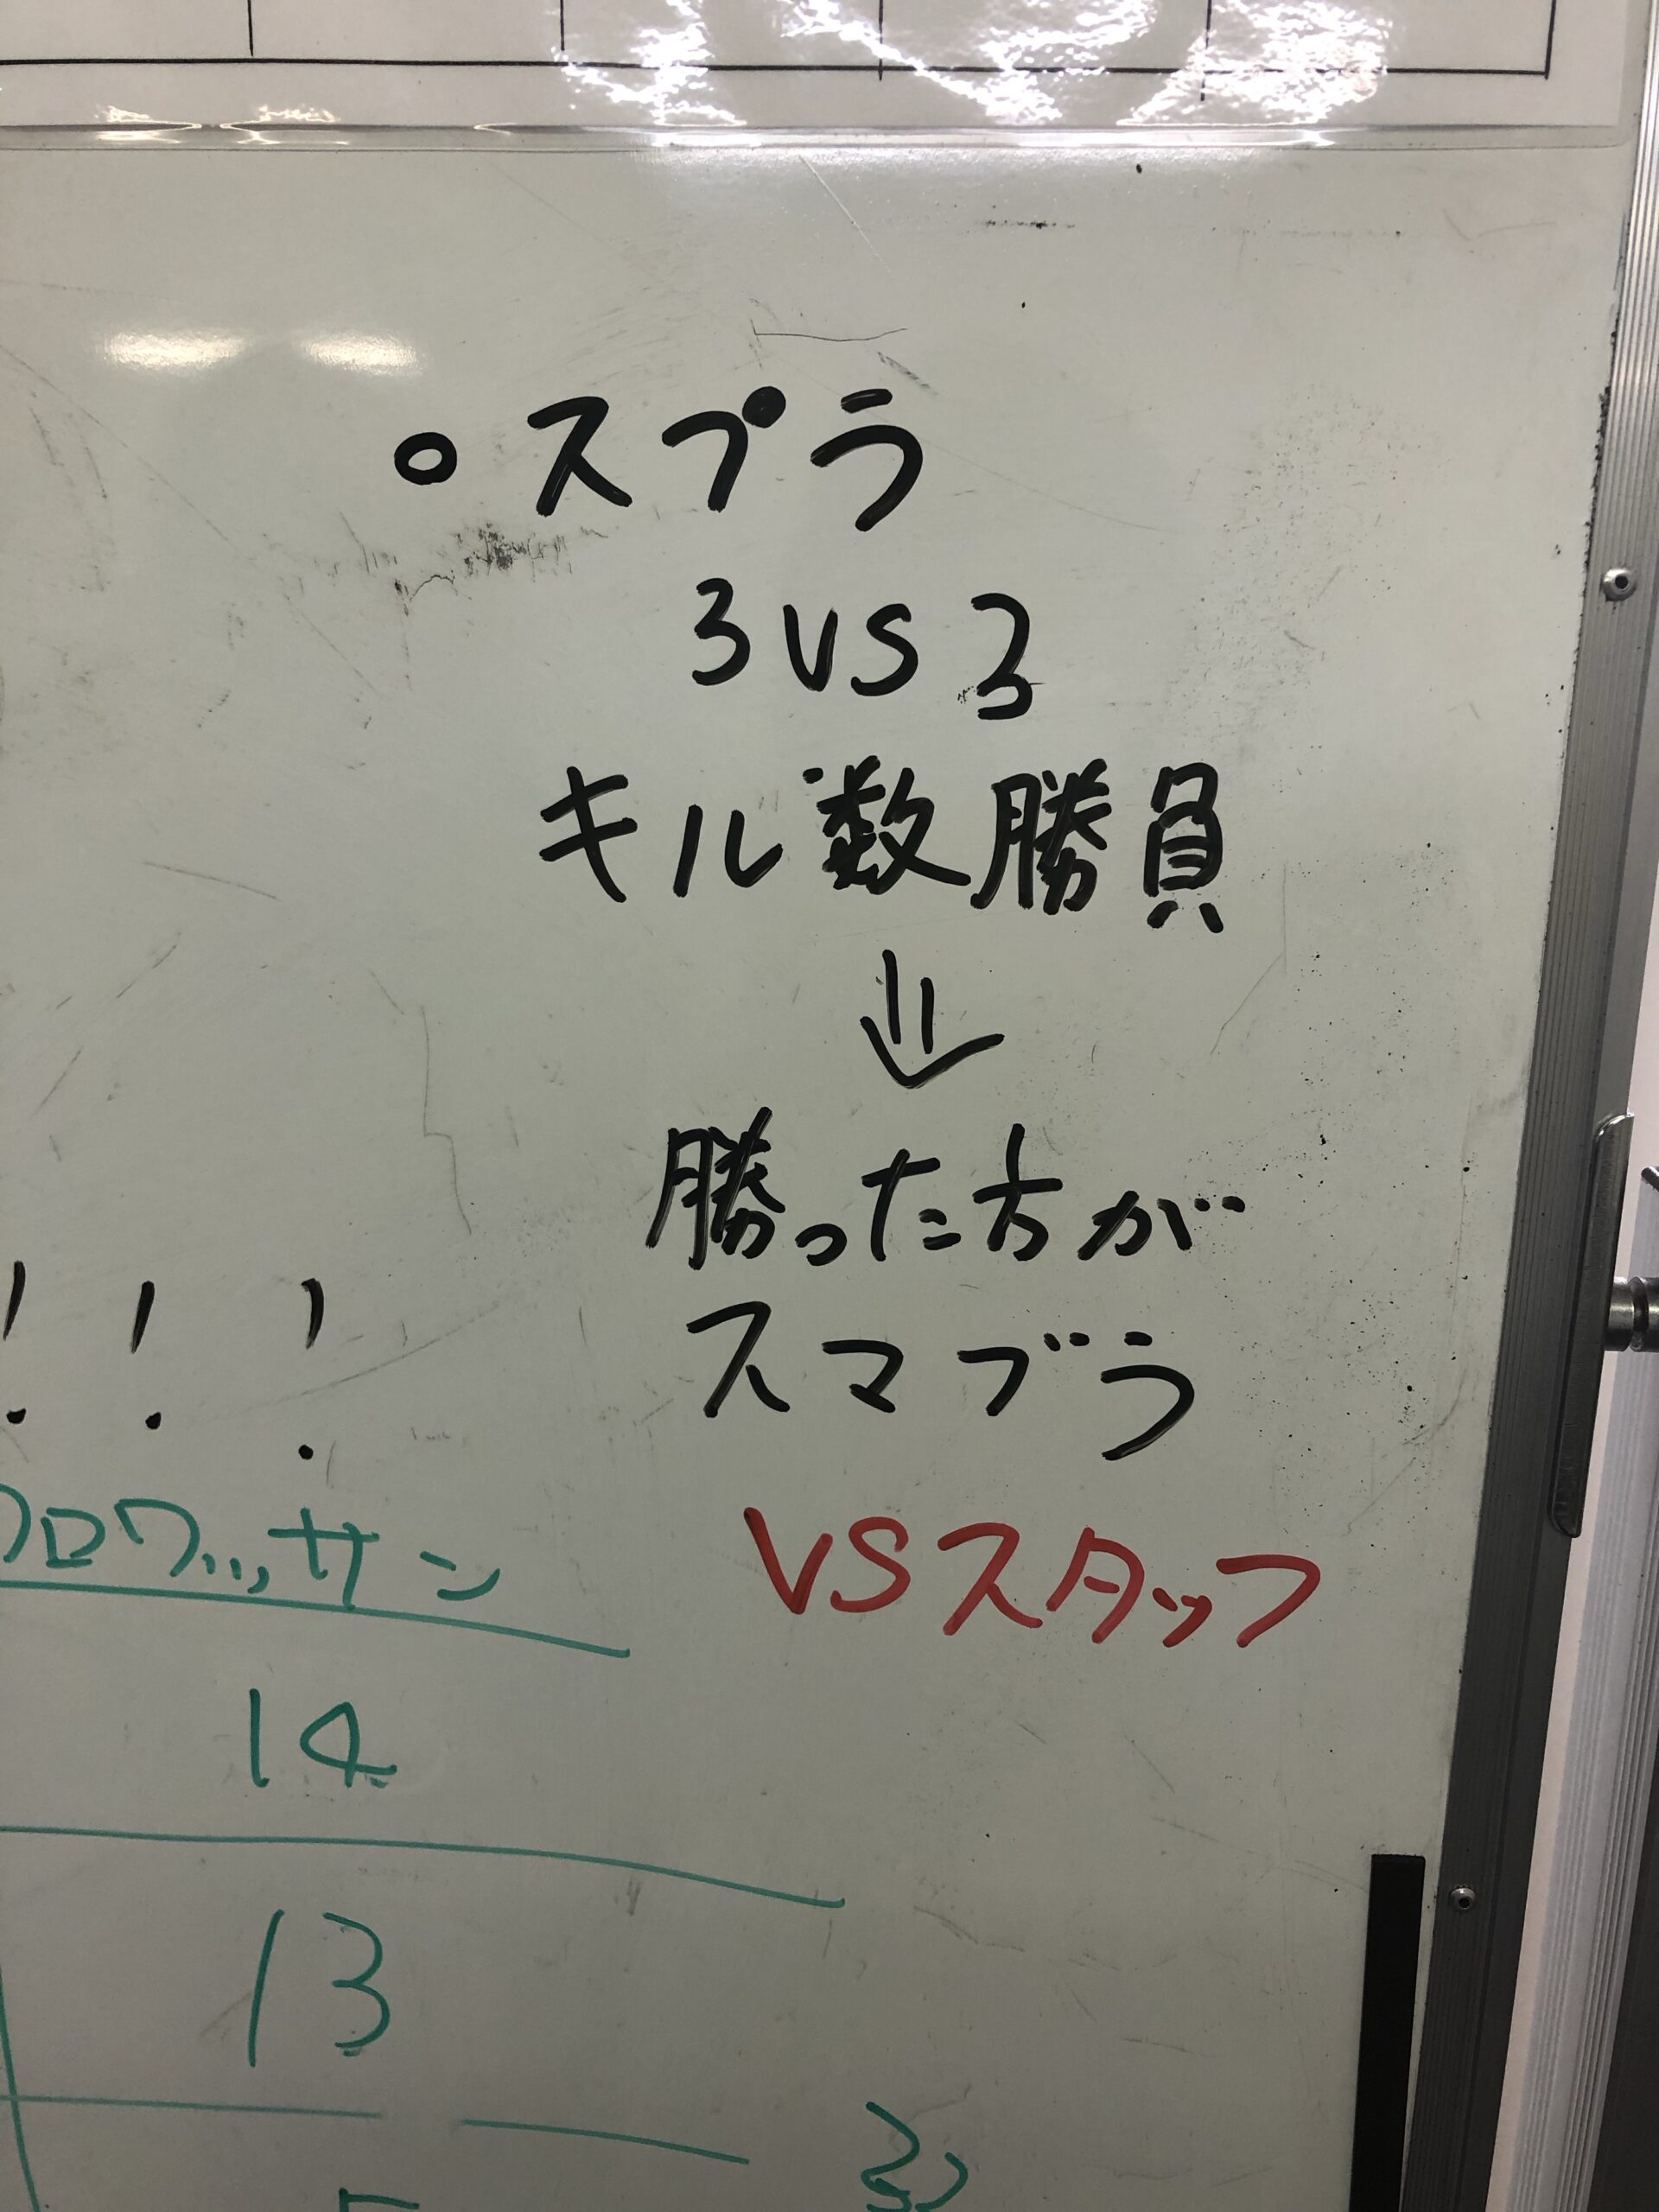 ○スプラ
3VS3
キル数勝負
⇓
勝った方が
スマブラ
VSスタッフ
! ! !
クロワッサン
14
13